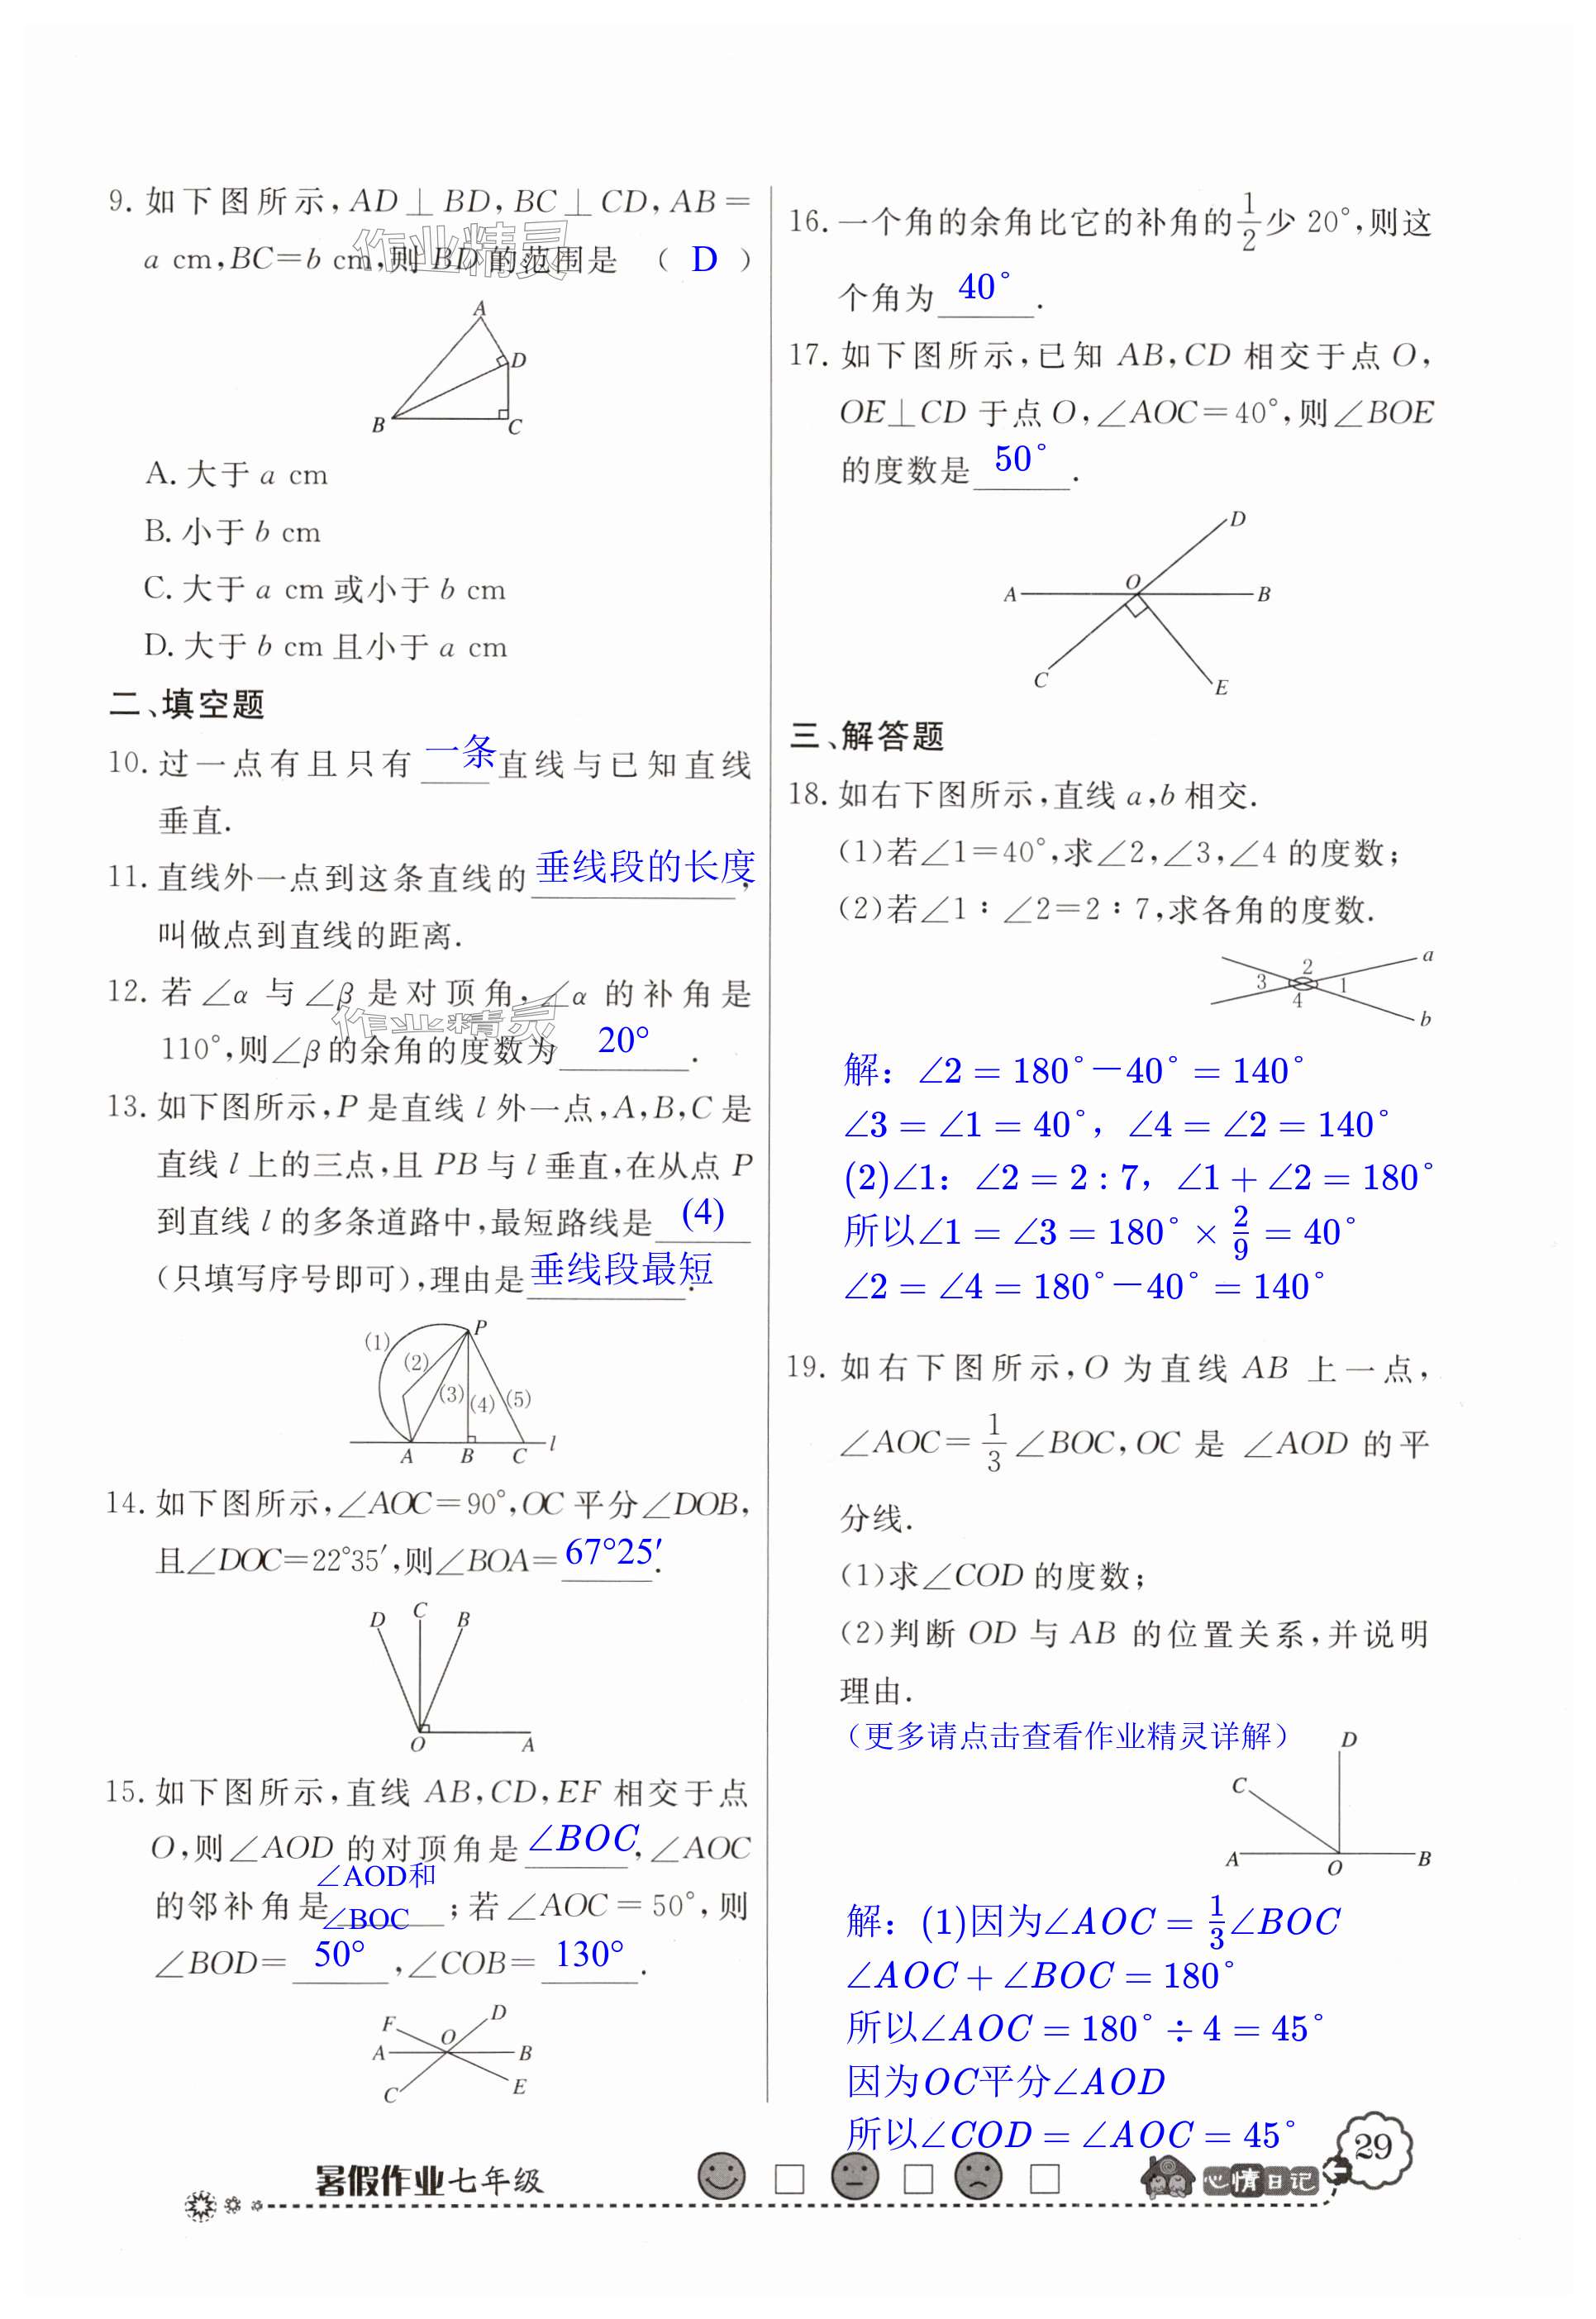 9. 如下图所示,AD⊥BD,BC⊥CD,AB=
a cm,BC=b cm,则 BD 的范围是 ( D )
作业精灵
A
D
B
C
A. 大于 a cm
B. 小于 b cm
C. 大于 a cm 或小于 b cm
D. 大于 b cm 且小于 a cm
二、填空题
10. 过一点有且只有 一条 直线与已知直线
垂直.
11. 直线外一点到这条直线的 垂线段的长度,
叫做点到直线的距离.
12. 若∠α 与∠β 是对顶角,∠α 的补角是
作业精灵
110°,则∠β的余角的度数为 20° .
13. 如下图所示,P 是直线 l 外一点,A,B,C 是
直线 l 上的三点,且 PB 与 l 垂直,在从点 P
到直线 l 的多条道路中,最短路线是 (4)
(只填写序号即可),理由是 垂线段最短.
(1)
P
(2)
(3)
(4)
(5)
A
B
C
l
14. 如下图所示,∠AOC=90°,OC 平分∠DOB,
且∠DOC=22°35′,则∠BOA= 67°25′.
D
C
B
O
A
15. 如下图所示,直线 AB,CD,EF 相交于点
O,则∠AOD 的对顶角是 ∠BOC,∠AOC
∠AOD和
的邻补角是 ∠BOC ;若∠AOC=50°,则
∠BOD= 50° ,∠COB= 130° .
F
D
O
A
B
C
E
16. 一个角的余角比它的补角的 1/2 少 20°,则这
个角为 40° .
17. 如下图所示,已知 AB,CD 相交于点 O,
OE⊥CD 于点 O,∠AOC=40°,则∠BOE
的度数是 50° .
D
O
A
B
C
E
三、解答题
18. 如右下图所示,直线 a,b 相交.
(1)若∠1=40°,求∠2,∠3,∠4 的度数;
(2)若∠1∶∠2=2∶7,求各角的度数.
a
2
3
1
4
b
解: ∠2 = 180°−40° = 140°
∠3 = ∠1 = 40°, ∠4 = ∠2 = 140°
(2)∠1: ∠2 = 2 : 7, ∠1 + ∠2 = 180°
所以∠1 = ∠3 = 180° × 2/9 = 40°
∠2 = ∠4 = 180°−40° = 140°
19. 如右下图所示,O 为直线 AB 上一点,
∠AOC= 1/3 ∠BOC,OC 是 ∠AOD 的平
分线.
(1)求∠COD 的度数;
(2)判断 OD 与 AB 的位置关系,并说明
理由.
(更多请点击查看作业精灵详解)
D
C
A
O
B
解: (1)因为∠AOC = 1/3∠BOC
∠AOC + ∠BOC = 180°
所以∠AOC = 180° ÷ 4 = 45°
因为OC平分∠AOD
所以∠COD = ∠AOC = 45°
暑假作业七年级
心情日记
29